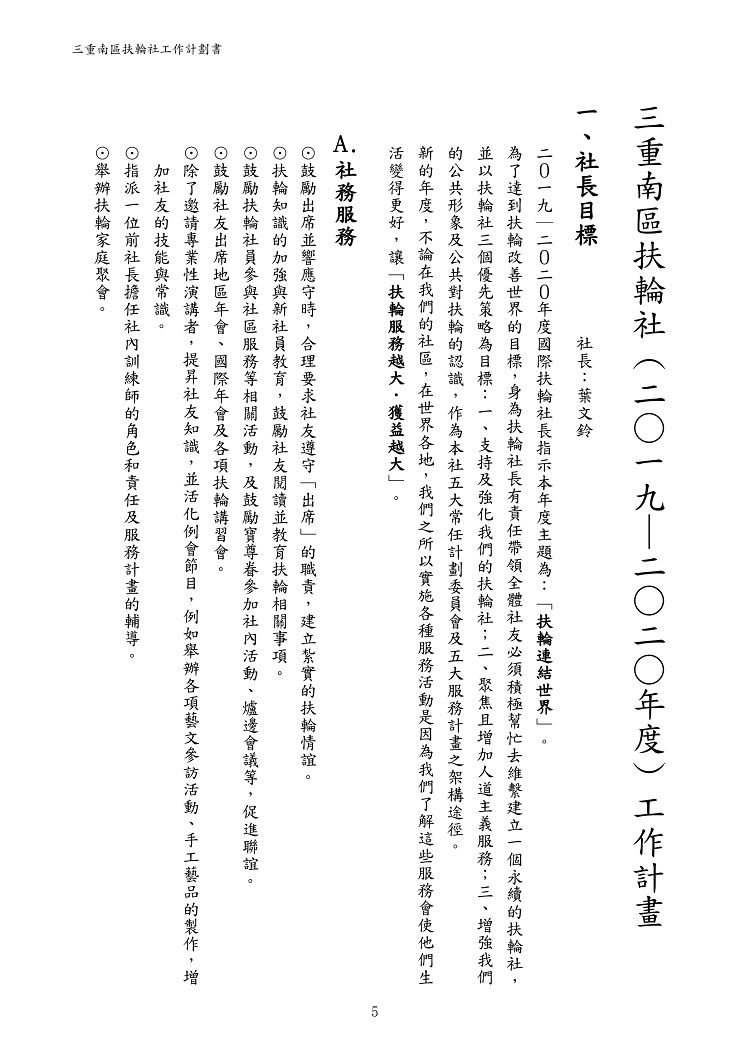 三重南區扶輪社工作計劃書
三重南區扶輪社（二〇一九—二〇二〇年度）工作計畫
一、社長目標
社長：葉文鈴
二０一九—二０二０年度國際扶輪社長指示本年度主題為：「扶輪連結世界」。
為了達到扶輪改善世界的目標，身為扶輪社長有責任帶領全體社友必須積極幫忙去維繫建立一個永續的扶輪社，
並以扶輪社三個優先策略為目標：一、支持及強化我們的扶輪社；二、聚焦且增加人道主義服務；三、增強我們
的公共形象及公共對扶輪的認識，作為本社五大常任計劃委員會及五大服務計畫之架構途徑。
新的年度，不論在我們的社區，在世界各地，我們之所以實施各種服務活動是因為我們了解這些服務會使他們生
活變得更好，讓「扶輪服務越大．獲益越大」。
A.社務服務
⊙鼓勵出席並響應守時，合理要求社友遵守「出席」的職責，建立紮實的扶輪情誼。
⊙扶輪知識的加強與新社員教育，鼓勵社友閱讀並教育扶輪相關事項。
⊙鼓勵扶輪社員參與社區服務等相關活動，及鼓勵寶尊眷參加社內活動、爐邊會議等，促進聯誼。
⊙鼓勵社友出席地區年會、國際年會及各項扶輪講習會。
⊙除了邀請專業性演講者，提昇社友知識，並活化例會節目，例如舉辦各項藝文參訪活動、手工藝品的製作，增
加社友的技能與常識。
⊙指派一位前社長擔任社內訓練師的角色和責任及服務計畫的輔導。
⊙舉辦扶輪家庭聚會。
5